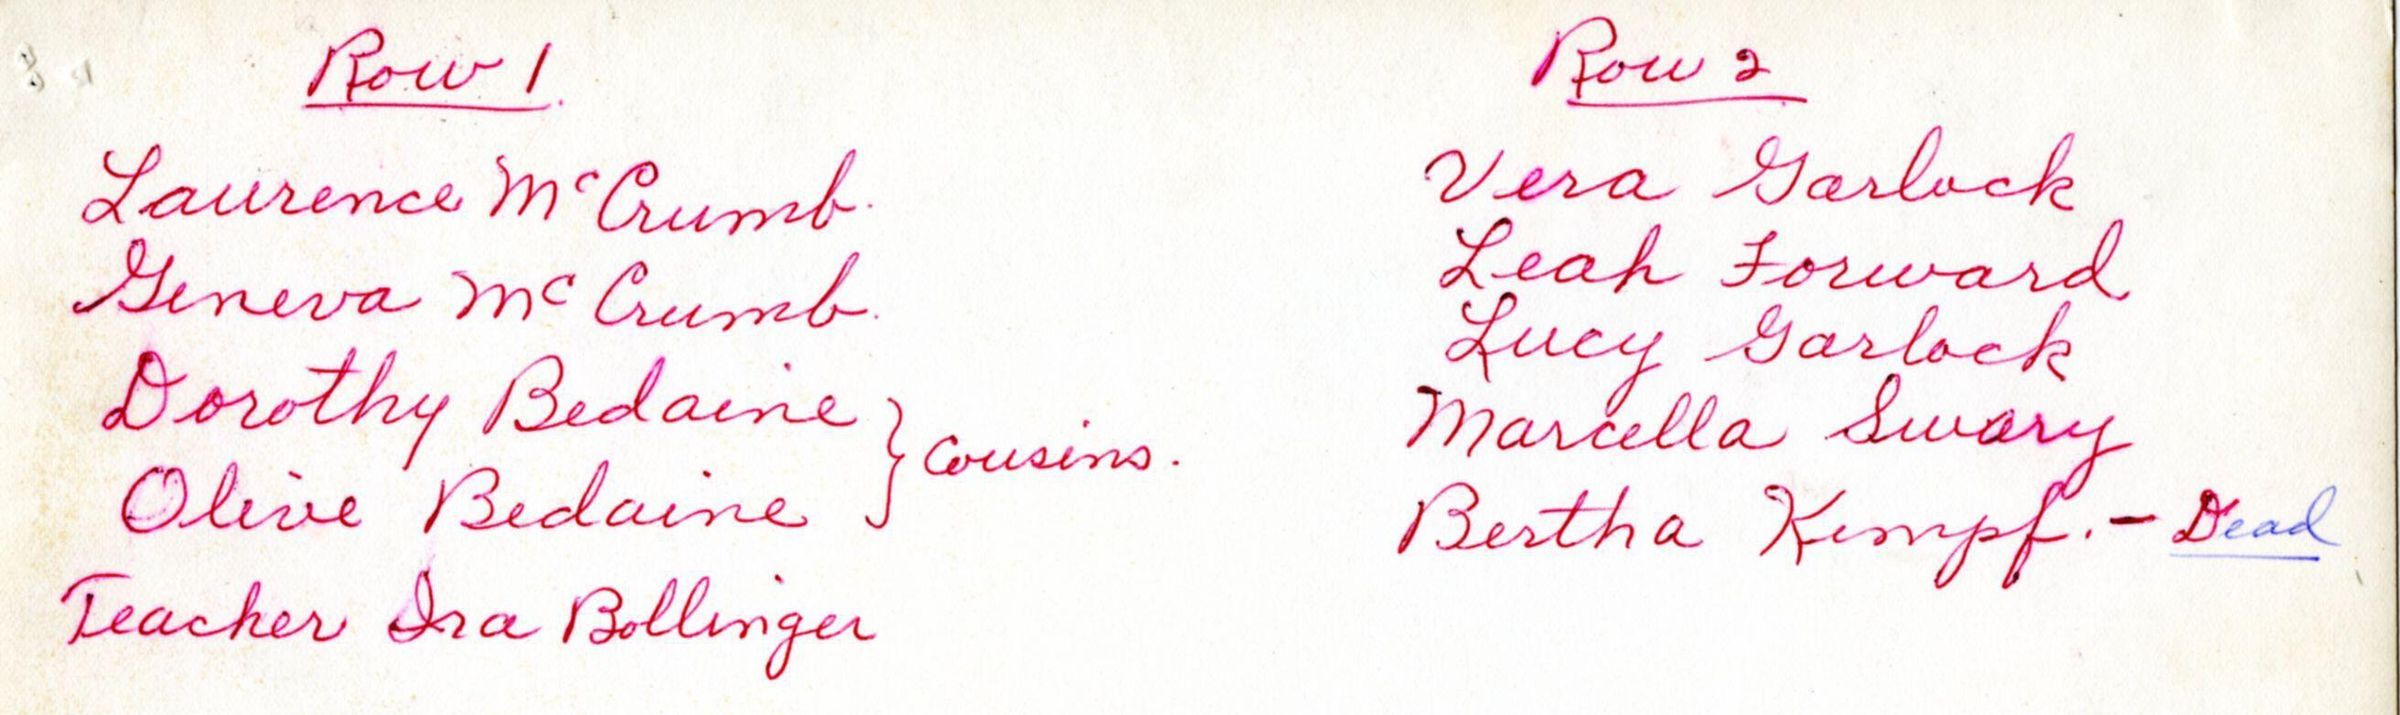 Row 1.
Laurence McCrumb.
Geneva McCrumb.
Dorothy Bedaine
Olive Bedaine } Cousins.
Teacher Ira Bollinger
Row 2
Vera Garlock
Leah Forward
Lucy Garlock
Marcella Swary
Bertha Kempf. - Dead